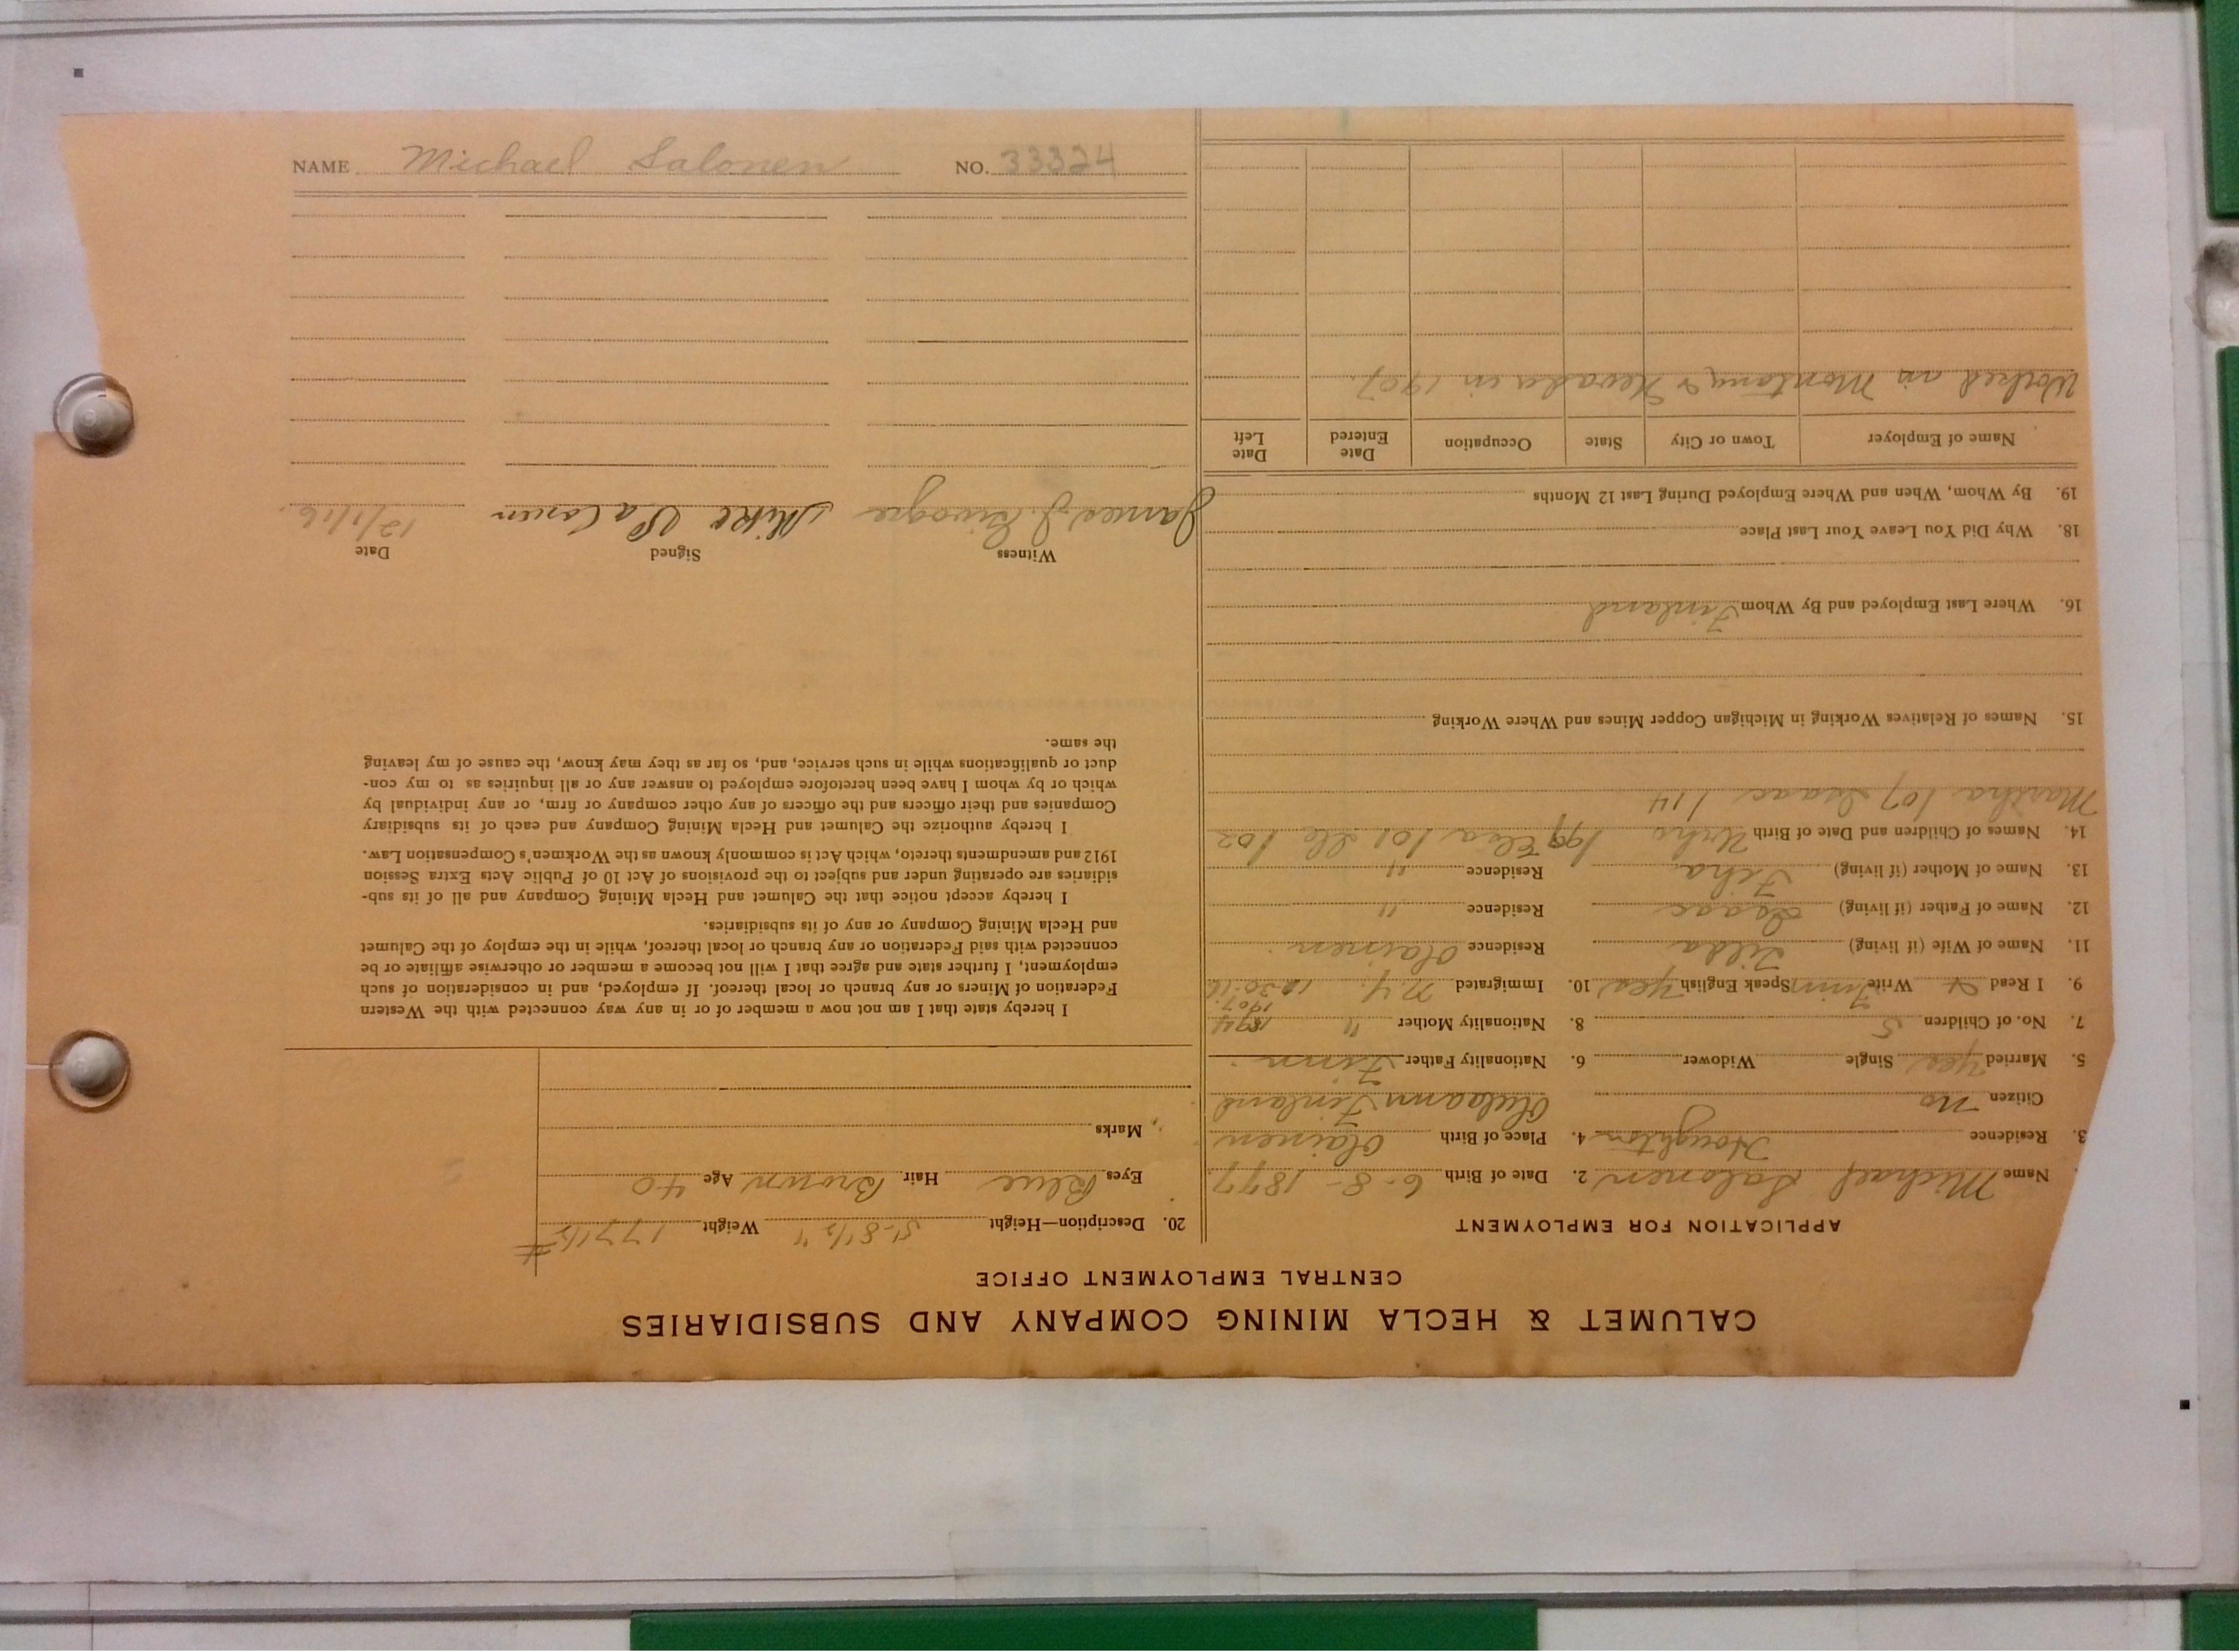 CALUMET & HECLA MINING COMPANY AND SUBSIDIARIES
CENTRAL EMPLOYMENT OFFICE
APPLICATION FOR EMPLOYMENT
Name Michael Salonen 2. Date of Birth 6-8-1877
3. Residence Houghton 4. Place of Birth Olainen
Citizen no Finland
5. Married yes Single Widower 6. Nationality Father Finn
7. No. of Children 5 8. Nationality Mother "
9. I Read & Write Finn Speak English yes 10. Immigrated N.Y. 1907
11. Name of Wife (if living) Tilda Residence Olainen
12. Name of Father (if living) Isaac Residence "
13. Name of Mother (if living) Residence "
14. Names of Children and Date of Birth Urho 199 101 102
Martha 107 Isaac 114
15. Names of Relatives Working in Michigan Copper Mines and Where Working
16. Where Last Employed and By Whom Finland
18. Why Did You Leave Your Last Place
19. By Whom, When and Where Employed During Last 12 Months
Name of Employer Town or City State Occupation Date Entered Date Left
Worked in Montana & Nevada in 1907.
20. Description—Height 5'-8 1/2" Weight 177 1/2 #
Eyes Blue Hair Brown Age 40
Marks
I hereby state that I am not now a member of or in any way connected with the Western
Federation of Miners or any branch or local thereof. If employed, and in consideration of such
employment, I further state and agree that I will not become a member or otherwise affiliate or be
connected with said Federation or any branch or local thereof, while in the employ of the Calumet
and Hecla Mining Company or any of its subsidiaries.
I hereby accept notice that the Calumet and Hecla Mining Company and all of its sub-
sidiaries are operating under and subject to the provisions of Act 10 of Public Acts Extra Session
1912 and amendments thereto, which Act is commonly known as the Workmen's Compensation Law.
I hereby authorize the Calumet and Hecla Mining Company and each of its subsidiary
Companies and their officers and the officers of any other company or firm, or any individual by
which or by whom I have been heretofore employed to answer any or all inquiries as to my con-
duct or qualifications while in such service, and, so far as they may know, the cause of my leaving
the same.
Witness Signed Date
James J. Mike Salonen 12/1/16.
NAME Michael Salonen NO. 33324